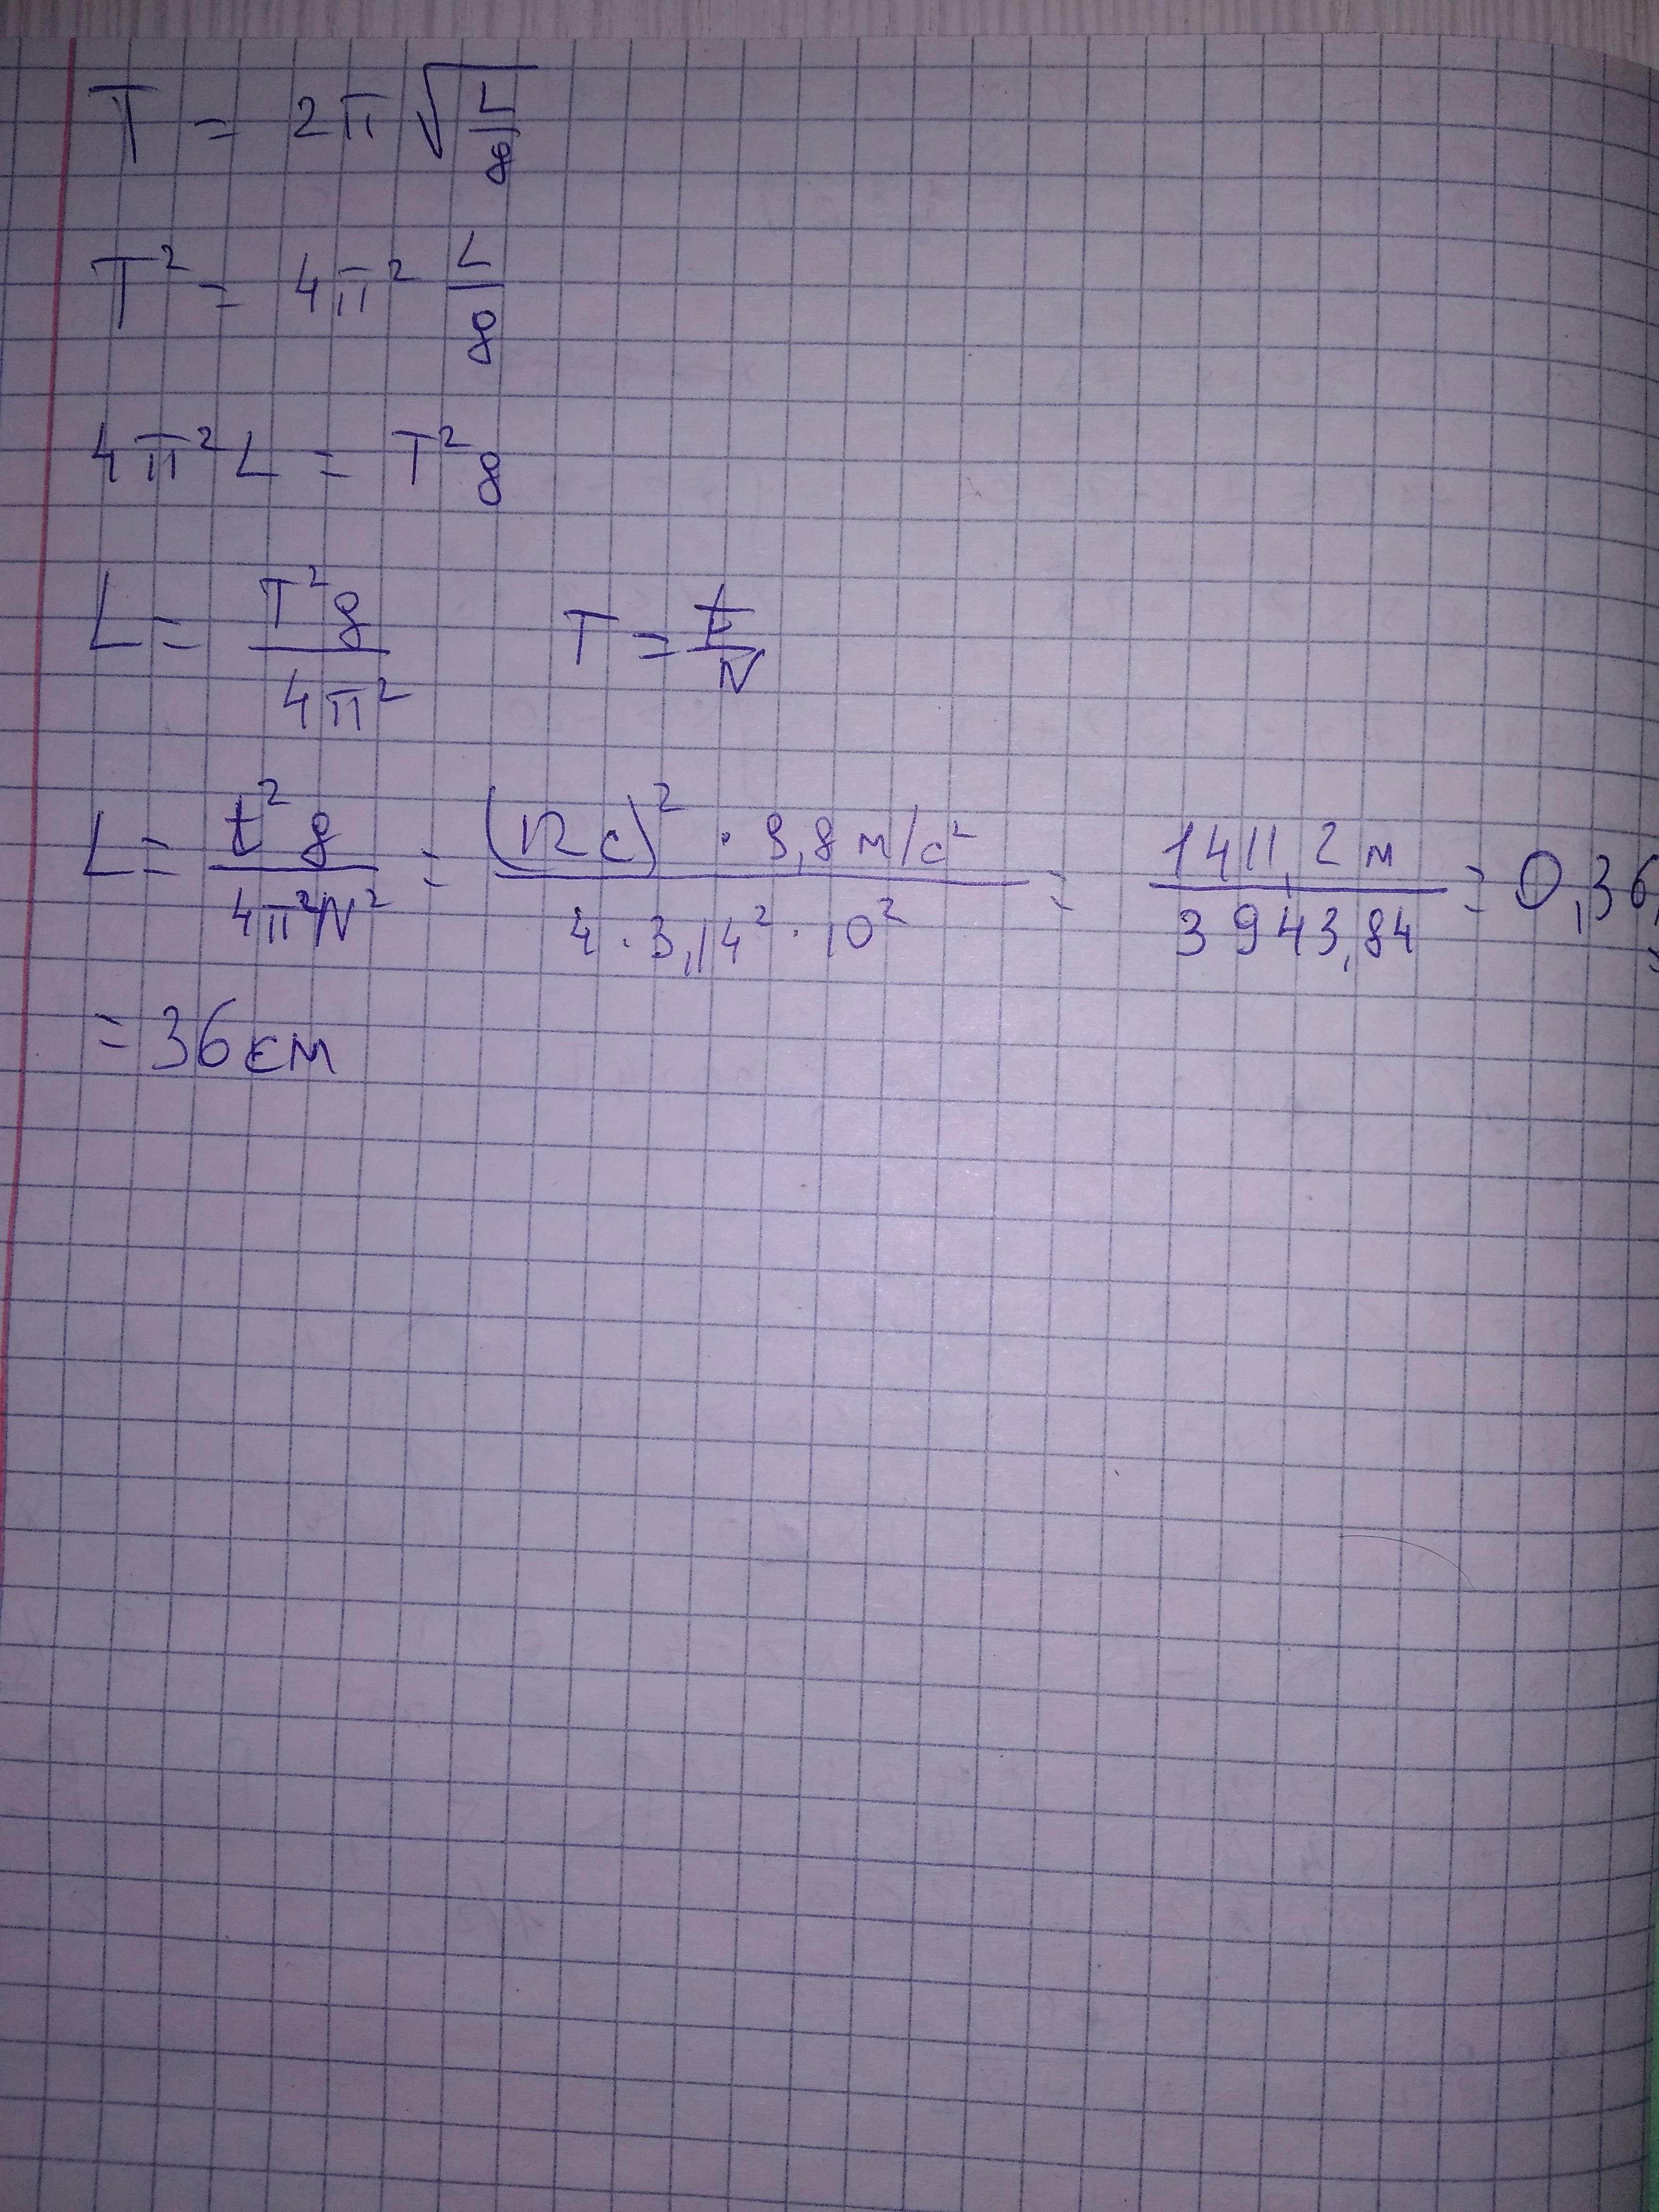 T = 2π √(L/g)
T² = 4π² L/g
4π²L = T²g
L = T²g/4π² T = t/N
L = t²g/4π²N² = (12 c)² · 9,8 м/c²/4 · 3,14² · 10² = 1411,2 м/3943,84 = 0,36
= 36 см